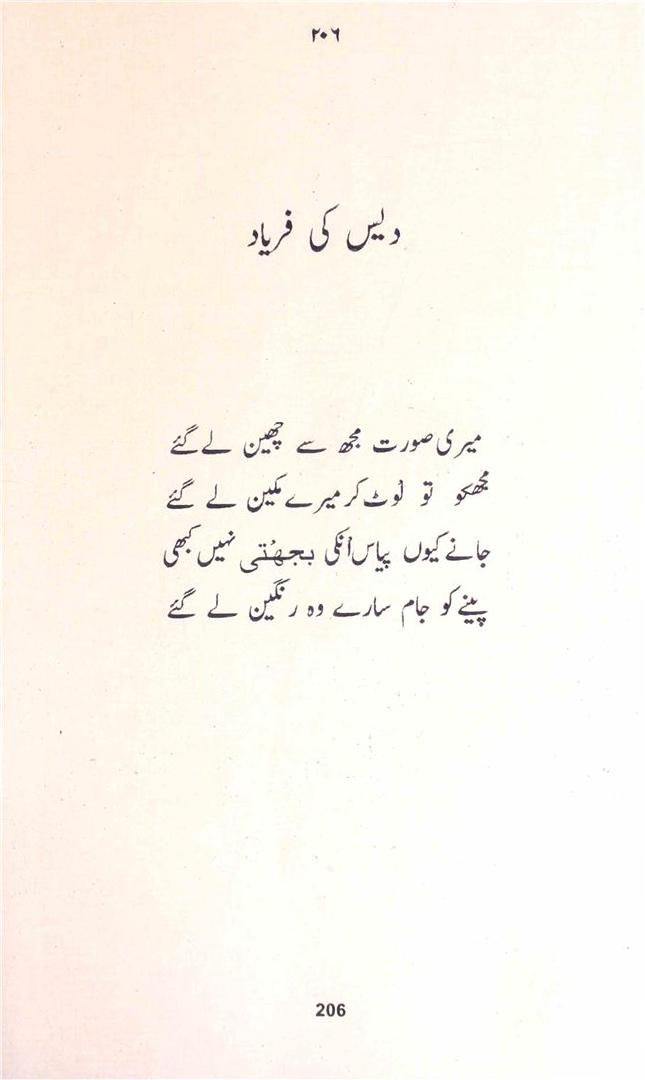 ۲۰۶
دیس کی فریاد
میری صورت مجھ سے چھین لے گئے
مجھکو تو لُوٹ کر میرے مکین لے گئے
جانے کیوں پیاس اُنکی بجھُتی نہیں کبھی
پینے کو جام سارے وہ رنگین لے گئے
206